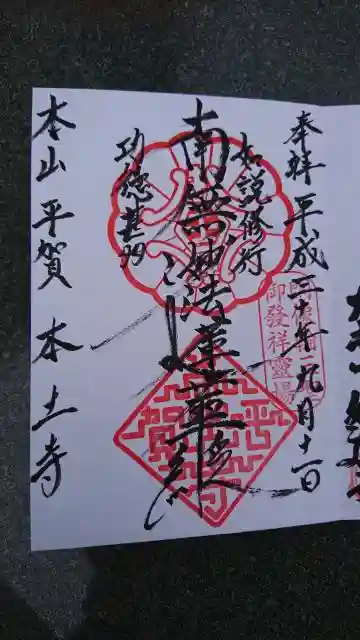 奉拝 平成三十年九月十一日
御發祥靈場
如説修行
南無妙法蓮華経
功徳甚多
本山 平賀 本土寺